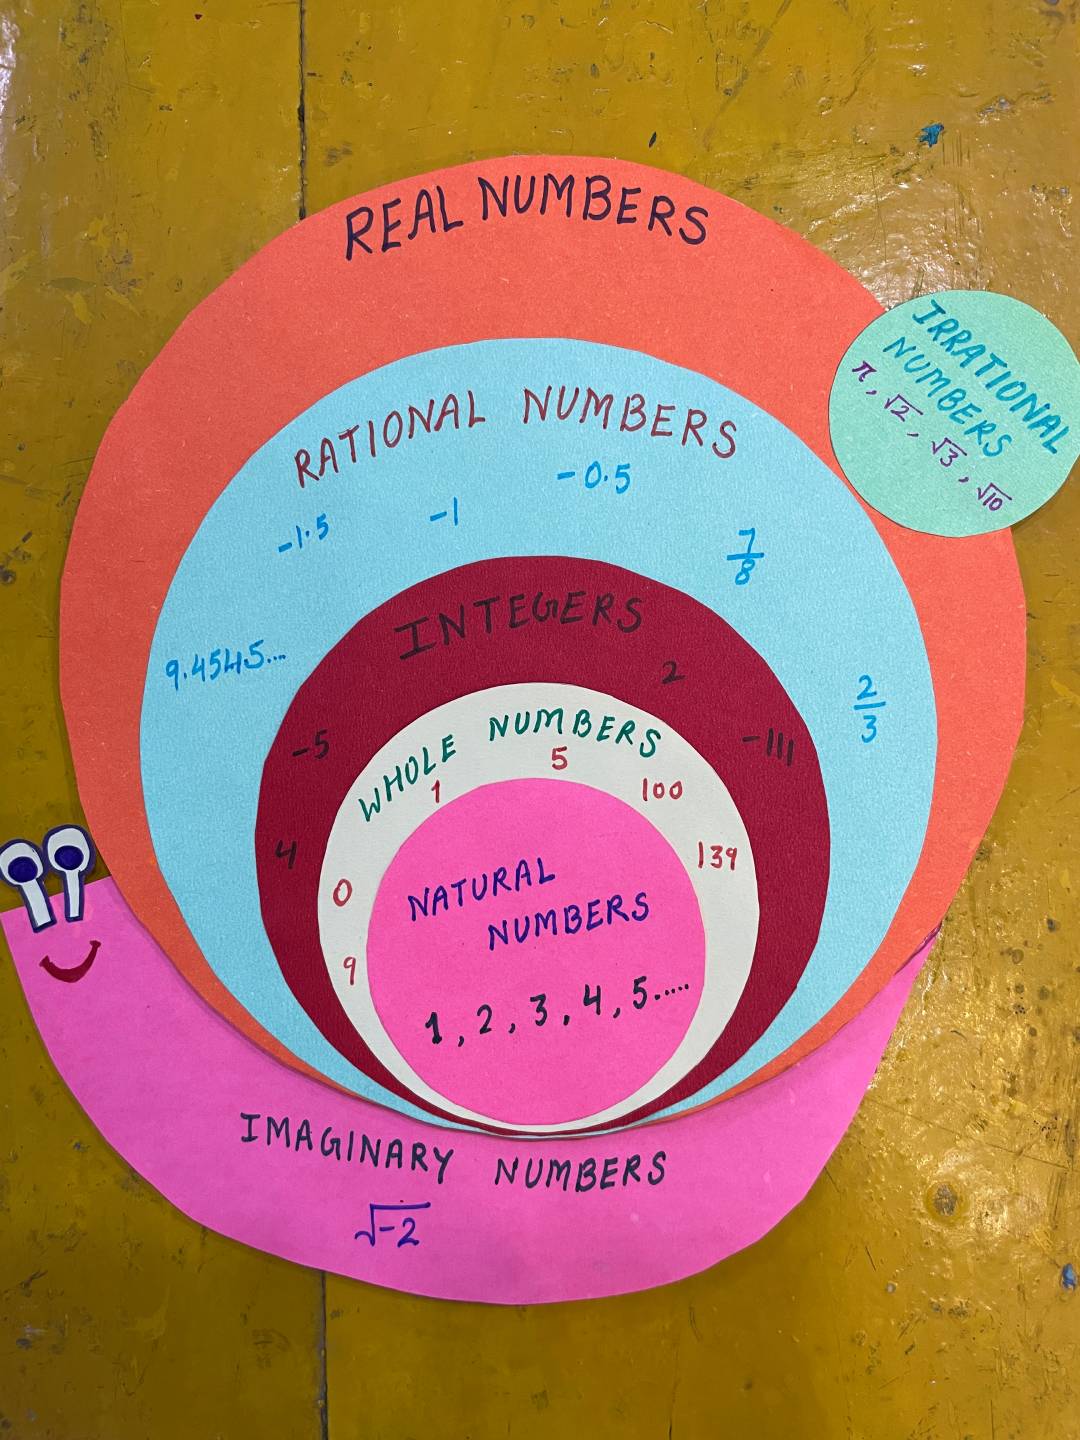 REAL NUMBERS
IRRATIONAL
NUMBERS
π, √2, √3, √10
RATIONAL NUMBERS
-1.5
-1
-0.5
7/8
9.4545...
2/3
INTEGERS
2
-5
-111
4
WHOLE NUMBERS
1
5
100
139
0
9
NATURAL
NUMBERS
1, 2, 3, 4, 5.....
IMAGINARY NUMBERS
√-2